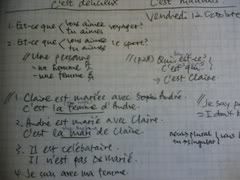 c'est délicieux
Vendredi 12 Octobre
1. Est-ce que vous aimez voyager?
tu aimes
2. Est-ce que vous aimez le sport?
tu aimes
// Une personne
un homme &
une femme &
// Qui est-ce?
C'est qui
C'est Claire
// 1. Claire est mariée avec André.
C'est la femme d'André.
// Je suis
2. André est marié avec Claire.
C'est le mari de Claire.
3. Il est célibataire.
Il n'est pas marié.
4. Je suis avec ma femme.